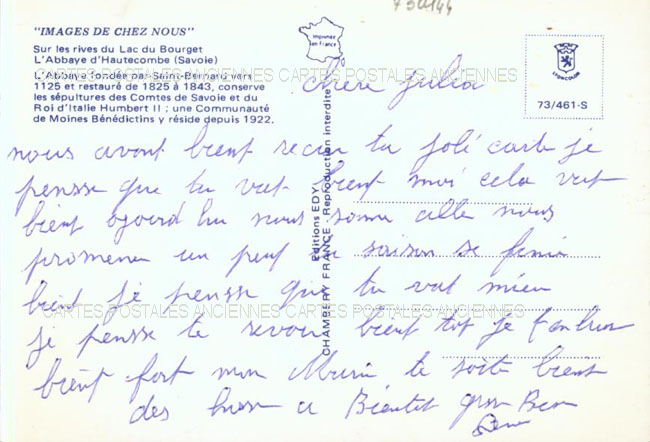 "IMAGES DE CHEZ NOUS"
Sur les rives du Lac du Bourget
L'Abbaye d'Hautecombe (Savoie)
L'Abbaye fondée par Saint-Bernard vers
1125 et restauré de 1825 à 1843, conserve
les sépultures des Comtes de Savoie et du
Roi d'Italie Humbert II ; une Communauté
de Moines Bénédictins y réside depuis 1922.
Imprimée
en France
LYONCOLOR
73/461-S
Editions EDY
CHAMBERY FRANCE - Reproduction interdite
CARTES POSTALES ANCIENNES CARTES POSTALES ANCIENNES
chère Julia
nous avont bient recu ta joli carte je
pensse que tu vat bient moi cela vat
bient ojourd hu nous somme alle nous
promener un peut la saison se fini
bient je pensse que tu vat mieu
CARTES POSTALES ANCIENNES CARTES POSTALES ANCIENNES
je pensse te revoir bient tot je
bient fort mon te soite bient
des a Bientot gros